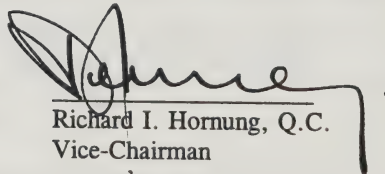 Richard I. Hornung, Q.C.
Vice-Chairman